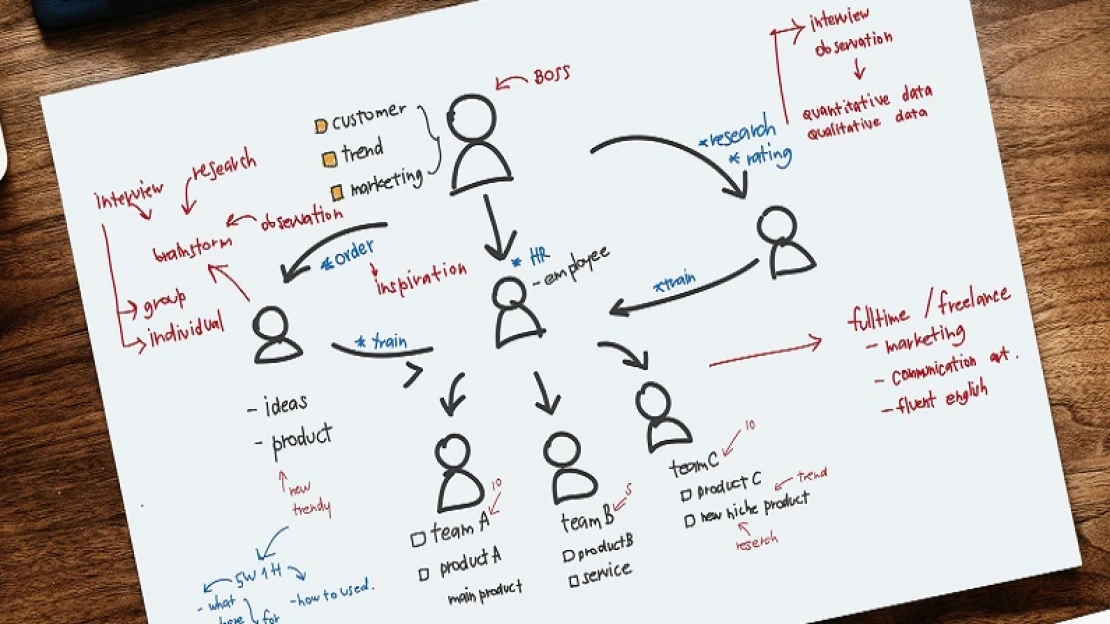 interview
observation
quantitative data
qualitative data
BOSS
customer
trend
marketing
*research
* rating
interview
research
obsevation
brainstorm
group
individual
*order
inspiration
* HR
- employee
*train
* train
fulltime / freelance
- marketing
- communication
- fluent english
- ideas
- product
new
trendy
5W1H
- what
- how to used.
for
10
team A
product A
main product
5
team B
product B
service
10
team C
product C
new niche product
trend
reserch